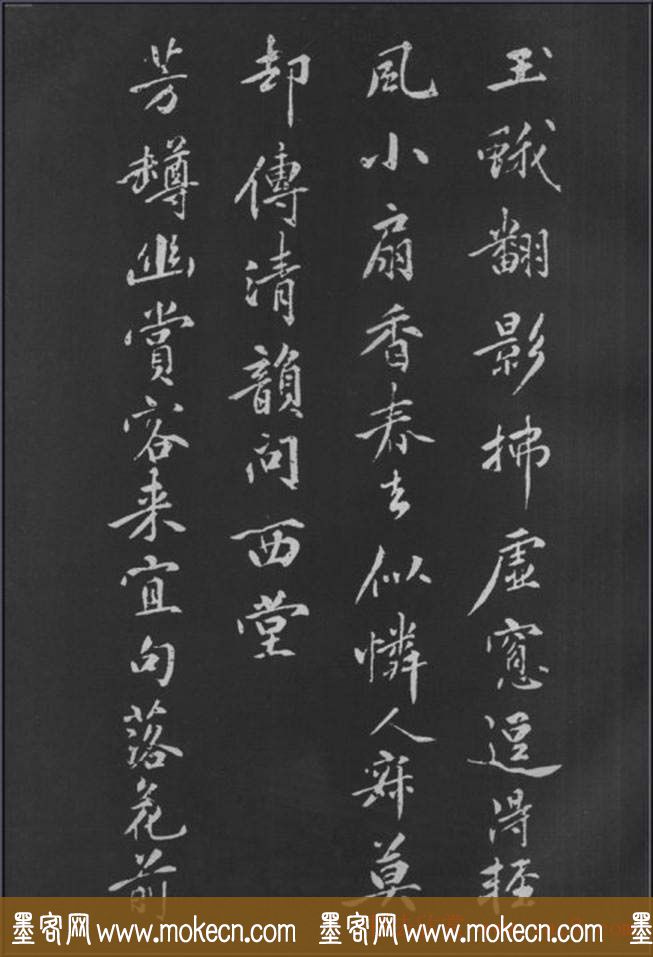 玉蛾翻影拂虛窻逗得輕
風小扇香春去似憐人寂莫
却傳清韻問西堂
芳樽幽賞客来宜句落花前
墨客网 www.mokecn.com 墨客网 www.mokecn.com